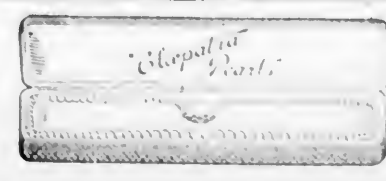 Cleopatra
Pearls